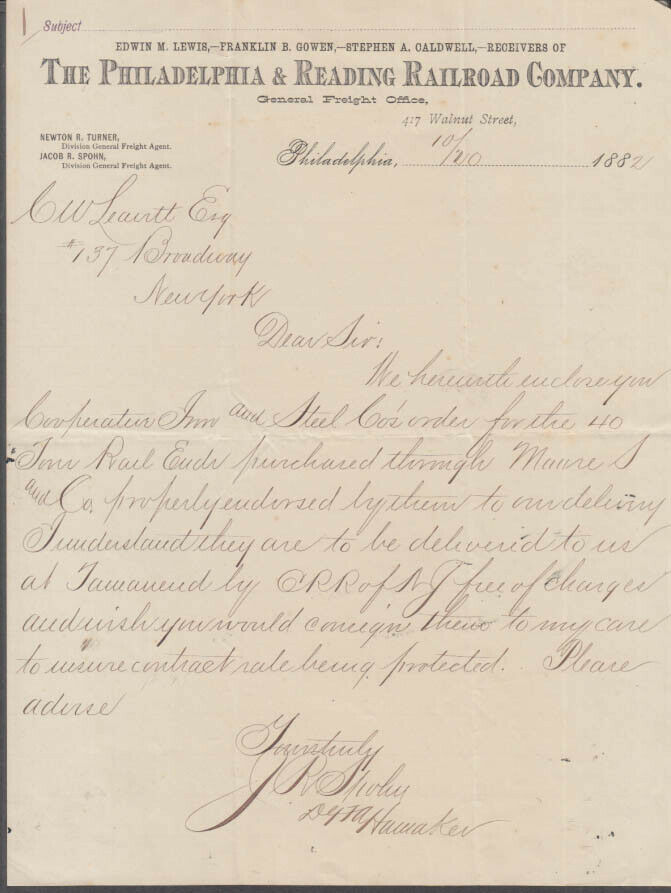 Subject
EDWIN M. LEWIS,—FRANKLIN B. GOWEN,—STEPHEN A. CALDWELL,—RECEIVERS OF
THE PHILADELPHIA & READING RAILROAD COMPANY.
General Freight Office,
417 Walnut Street,
NEWTON R. TURNER,
Division General Freight Agent.
JACOB R. SPOHN,
Division General Freight Agent.
Philadelphia, 10/20 1882
C W Leavitt Esq
#137 Broadway
New York
Dear Sir:
We herewith enclose you
Cooperative Iron and Steel Co's order for the 40
Tons Rail Ends purchased through Moore S
and Co. properly endorsed by them to our delivery
I understand they are to be delivered to us
at Tamanend by CRR of NJ free of charges
and wish you would consign them to my care
to insure contract rate being protected. Please
advise
Yours truly
J R Spohn
Hamaker